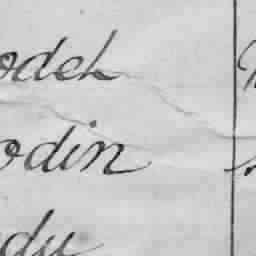 odek
odin
du